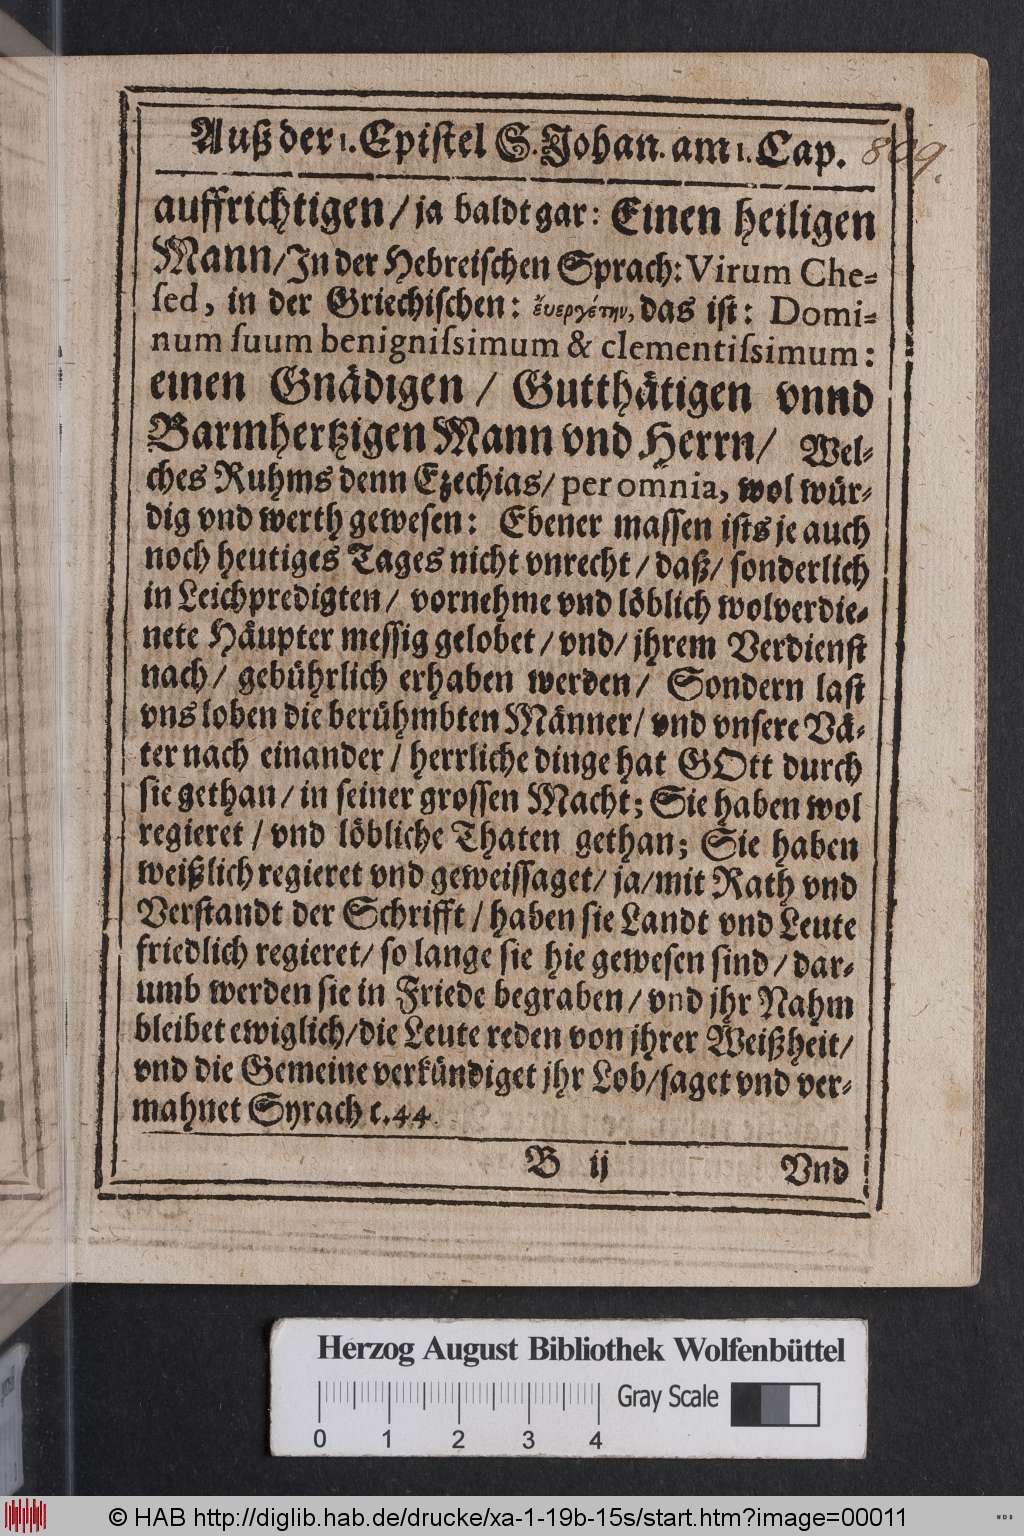 Auß der 1. Epistel S. Johan. am 1. Cap. 809.
auffrichtigen / ja baldt gar: Einen heiligen
Mann / In der Hebreischen Sprach: Virum Che-
sed, in der Griechischen: ἐυεργέτην, das ist: Domi-
num suum benignissimum & clementissimum:
einen Gnädigen / Gutthätigen vnnd
Barmhertzigen Mann vnd Herrn / Wel-
ches Ruhms denn Ezechias / per omnia, wol wür-
dig vnd werth gewesen: Ebener massen ists je auch
noch heutiges Tages nicht vnrecht / daß / sonderlich
in Leichpredigten / vornehme vnd löblich wolverdie-
nete Häupter messig gelobet / vnd / jhrem Verdienst
nach / gebührlich erhaben werden / Sondern last
vns loben die berühmbten Männer / vnd vnsere Vä-
ter nach einander / herrliche dinge hat GOtt durch
sie gethan / in seiner grossen Macht; Sie haben wol
regieret / vnd löbliche Thaten gethan; Sie haben
weißlich regieret vnd geweissaget / ja / mit Rath vnd
Verstandt der Schrifft / haben sie Landt vnd Leute
friedlich regieret / so lange sie hie gewesen sind / dar-
umb werden sie in Friede begraben / vnd jhr Nahm
bleibet ewiglich / die Leute reden von jhrer Weißheit /
vnd die Gemeine verkündiget jhr Lob / saget vnd ver-
mahnet Syrach c. 44.
B ij Vnd
Herzog August Bibliothek Wolfenbüttel
Gray Scale
0 1 2 3 4
© HAB http://diglib.hab.de/drucke/xa-1-19b-15s/start.htm?image=00011